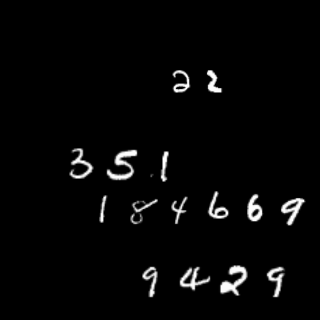 22
351
184669
9429